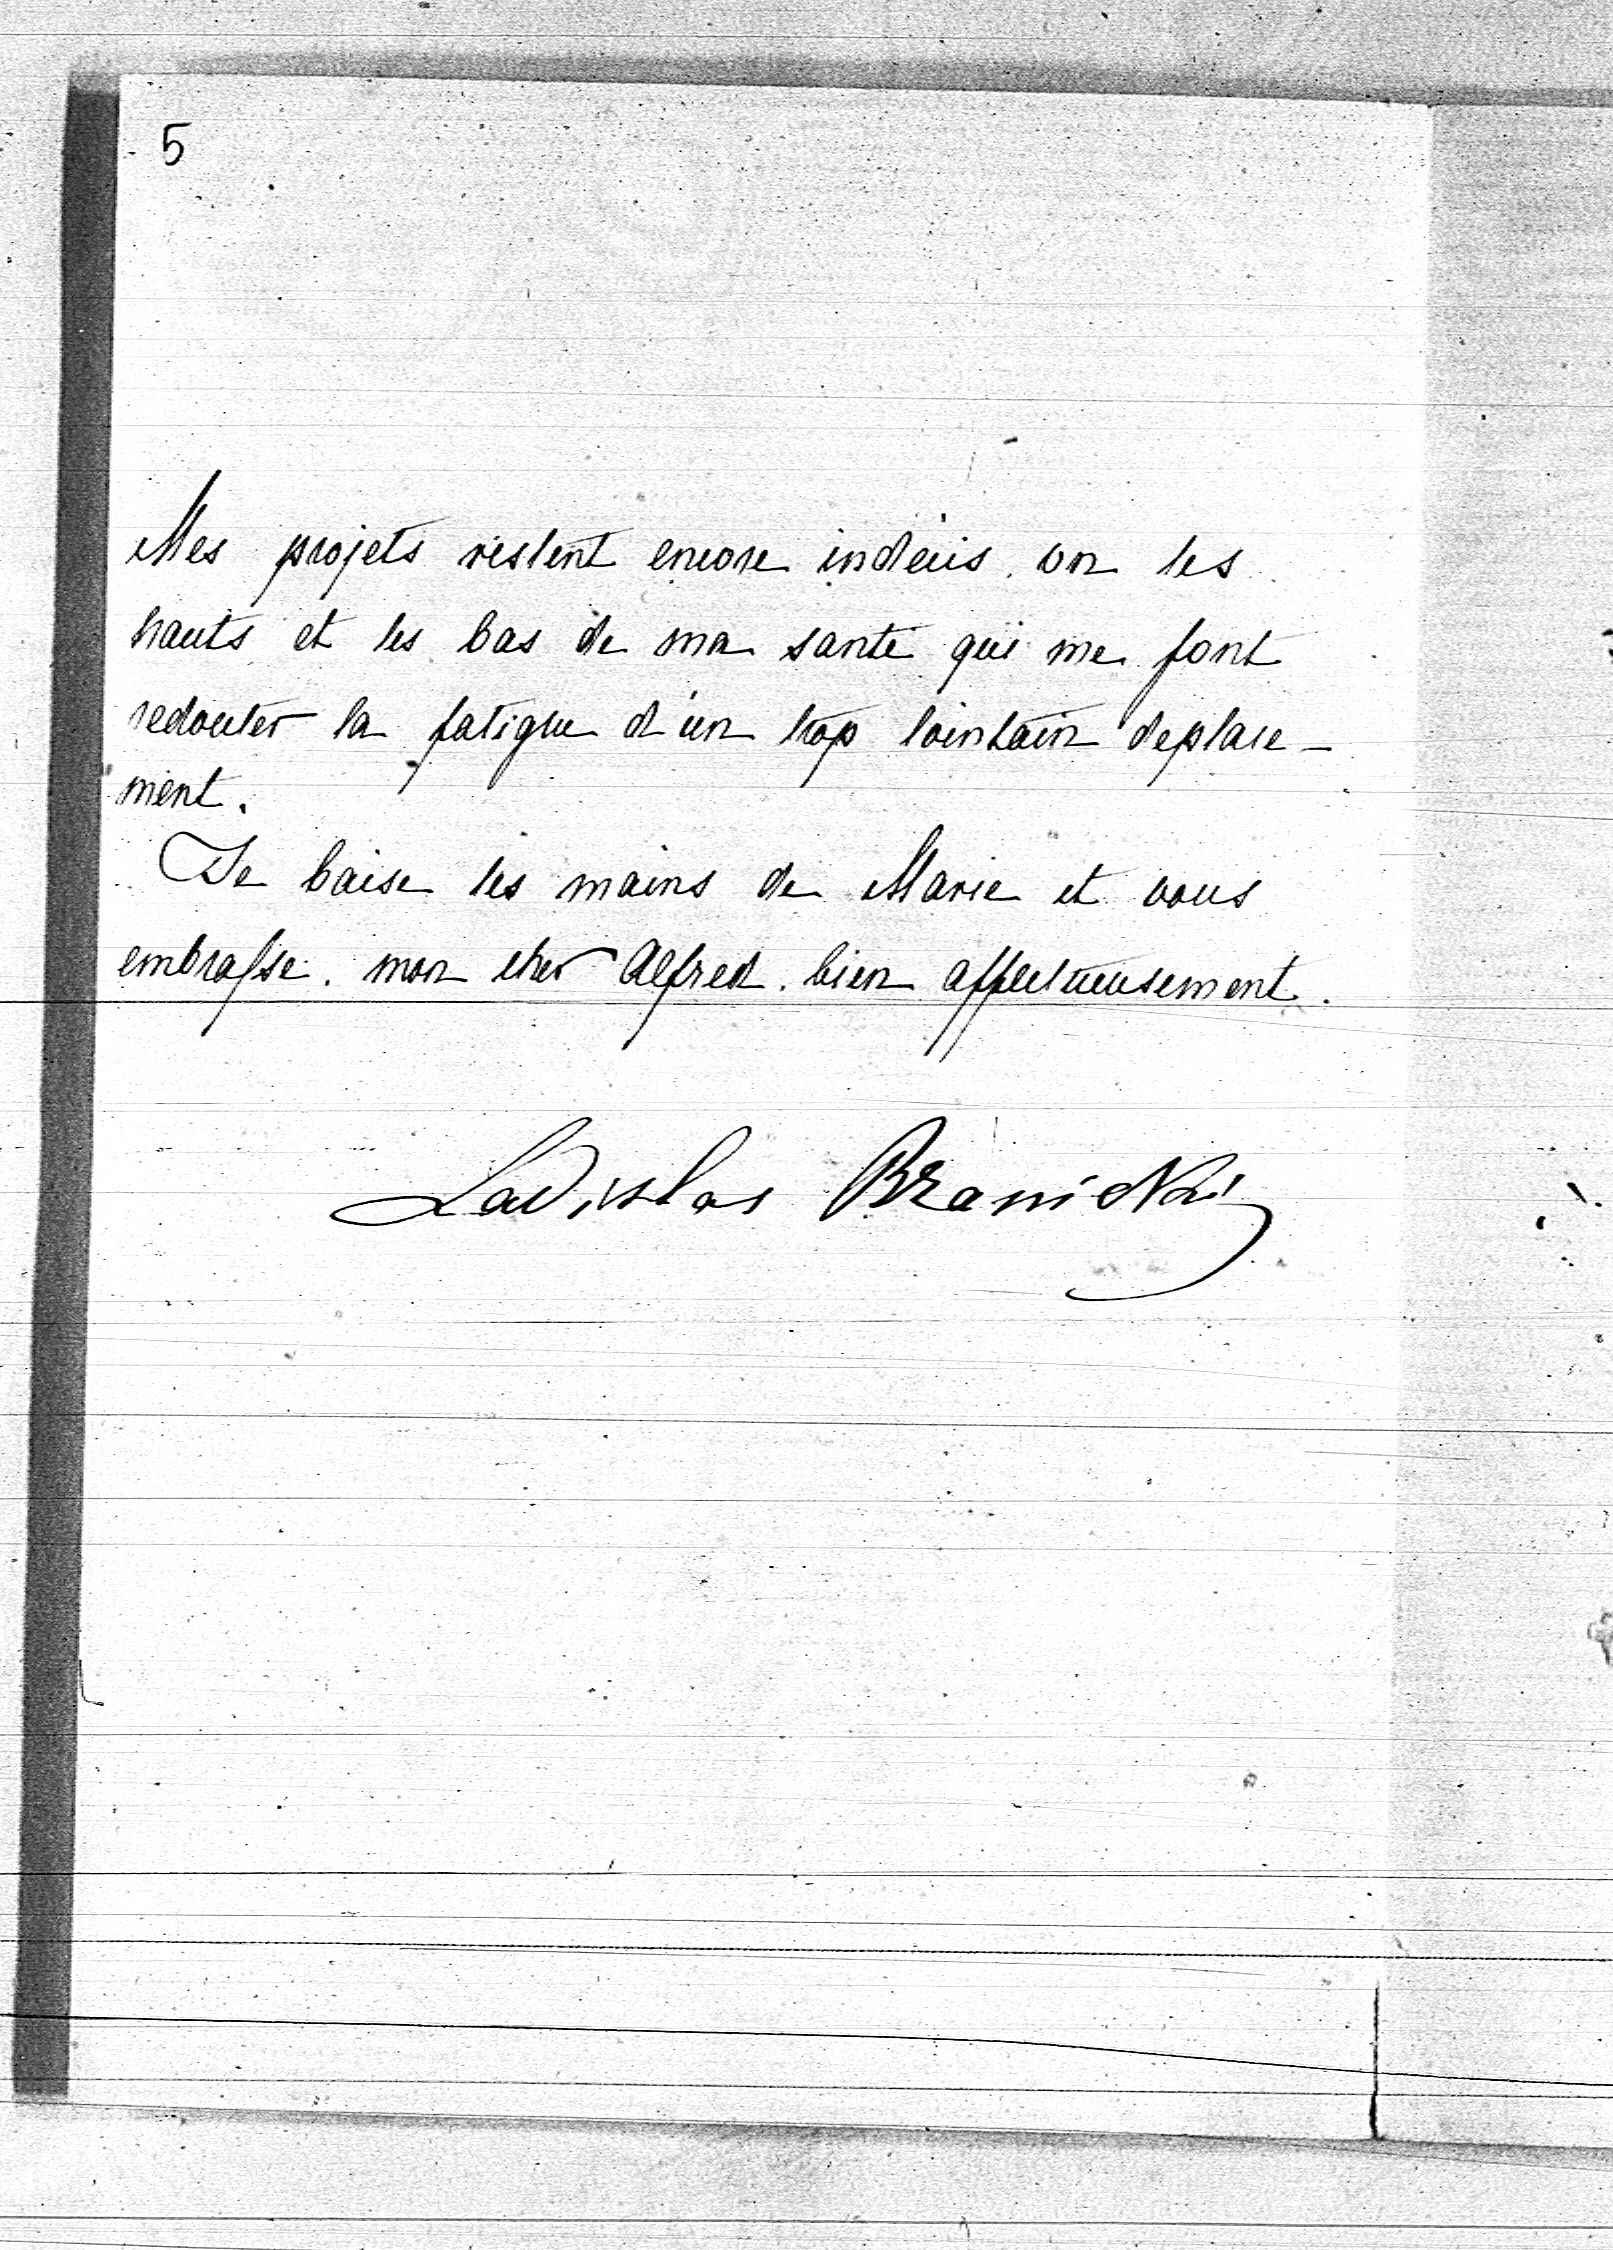 5
Mes projets restent encore indécis. vu les
hauts et les bas de ma santé qui me font
redouter la fatigue d'un trop lointain déplace-
ment.
Je baise les mains de Marie et vous
embrasse. mon cher Alfred. bien affectueusement.
Ladislas Branicki